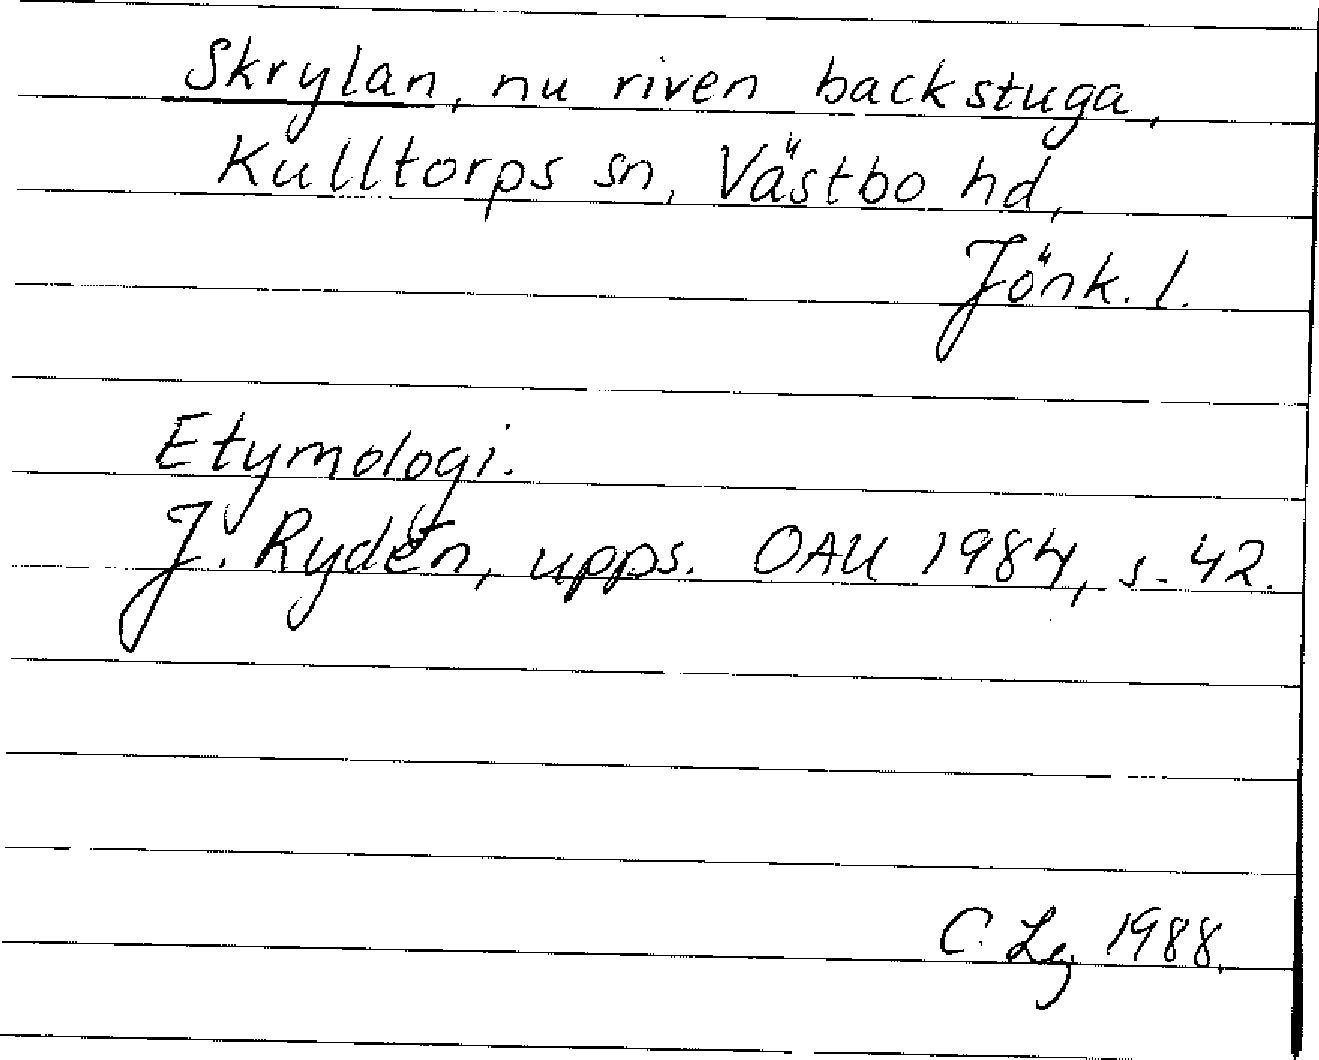 Skrylan, nu riven backstuga,
Kulltorps sn, Västbo hd,
Jönk. l.
Etymologi.
J. Rydén, upps. OAU 1984, s. 42.
C. Lg 1988.